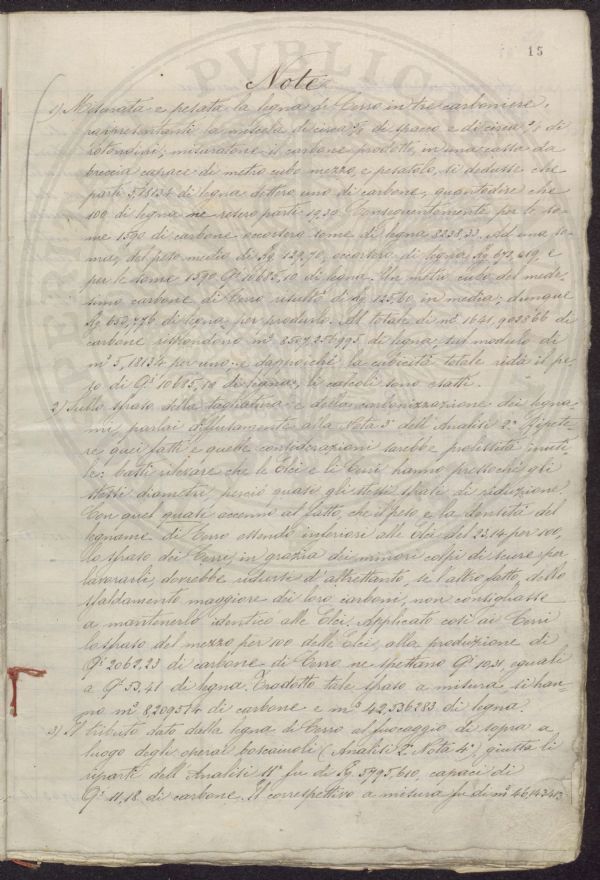 15
Note
1) Misurata e pesata la legna di Cerro in tre carboniere,
rappresentanti la miscela di circa di spacco e di circa di
totondini; misuratone il carbone prodotto, in una cassa da
breccia capace di metro cubo mezzo, e pesatolo, si dedusse che
parti 5,18134 di legna dettero uno di carbone, quantodire che
100 di legna ne resero parti 19,30. Conseguentemente per le so-
me 1590 di carbone occorsero some di legna 8238,33. Ad una so-
ma, del peso medio di Kg. 129,70, occorsero di legna Kg. 672,019, e
per le some 1590 Q.i 10685,10 di legna. Un metro cubo del mede-
simo carbone di Cerro risultò di Kg. 125,60 in media; dunque
Kg. 650,776 di legna per produrlo. Al totale di m.c 1641,903866 di
carbone rispondono m.c 8507,256993 di legna, sul modulo di
m.c 5,18134 per uno: e dappoichè la cubicità totale redà il pe-
so di Q.i 10685,10 di legna, i calcoli sono esatti.
2) Sullo sfraso della tagliatura e della carbonizzazione dei legna-
mi, parlai diffusamente alla Nota 3a dell'Analisi 2a. Ripete-
re quei fatti e quelle considerazioni sarebbe prolissità inuti-
le: basti rilevare che le Elci e li Cerri hanno pressochè gli
stessi diametri, perciò quasi gli stessi sfrasi di riduzione.
Con quel quasi accenno al fatto, che il peso e la densità del
legname di Cerro essendo inferiori alle Elci del 23,14 per 100,
lo sfraso dei Cerri, in grazia dei minori colpi di scure per
lavorarli, dovrebbe ridursi d'altrettanto, se l'altro fatto, dello
sfaldamento maggiore dei loro carboni, non consigliasse
a mantenerlo identico alle Elci. Applicato così ai Cerri
lo sfraso del mezzo per 100 delle Elci, alla produzione di
Q.i 2062,23 di carbone di Cerro ne spettano Q.i 10,31, eguali
a Q.i 53,41 di legna. Tradotto tale sfraso a misura, si han-
no m.c 8,209514 di carbone e m.c 42,536283 di legna.
3) Il tributo dato dalla legna di Cerro al fuocaggio di sopra a
luogo degli operai boscaiuoli (Analisi 2a Nota 4a) giusta li
riparti dell'Analisi 11a fu di Kg. 5795,610, capaci di
Q.i 11,18 di carbone. Il correspettivo a misura fu di m.c